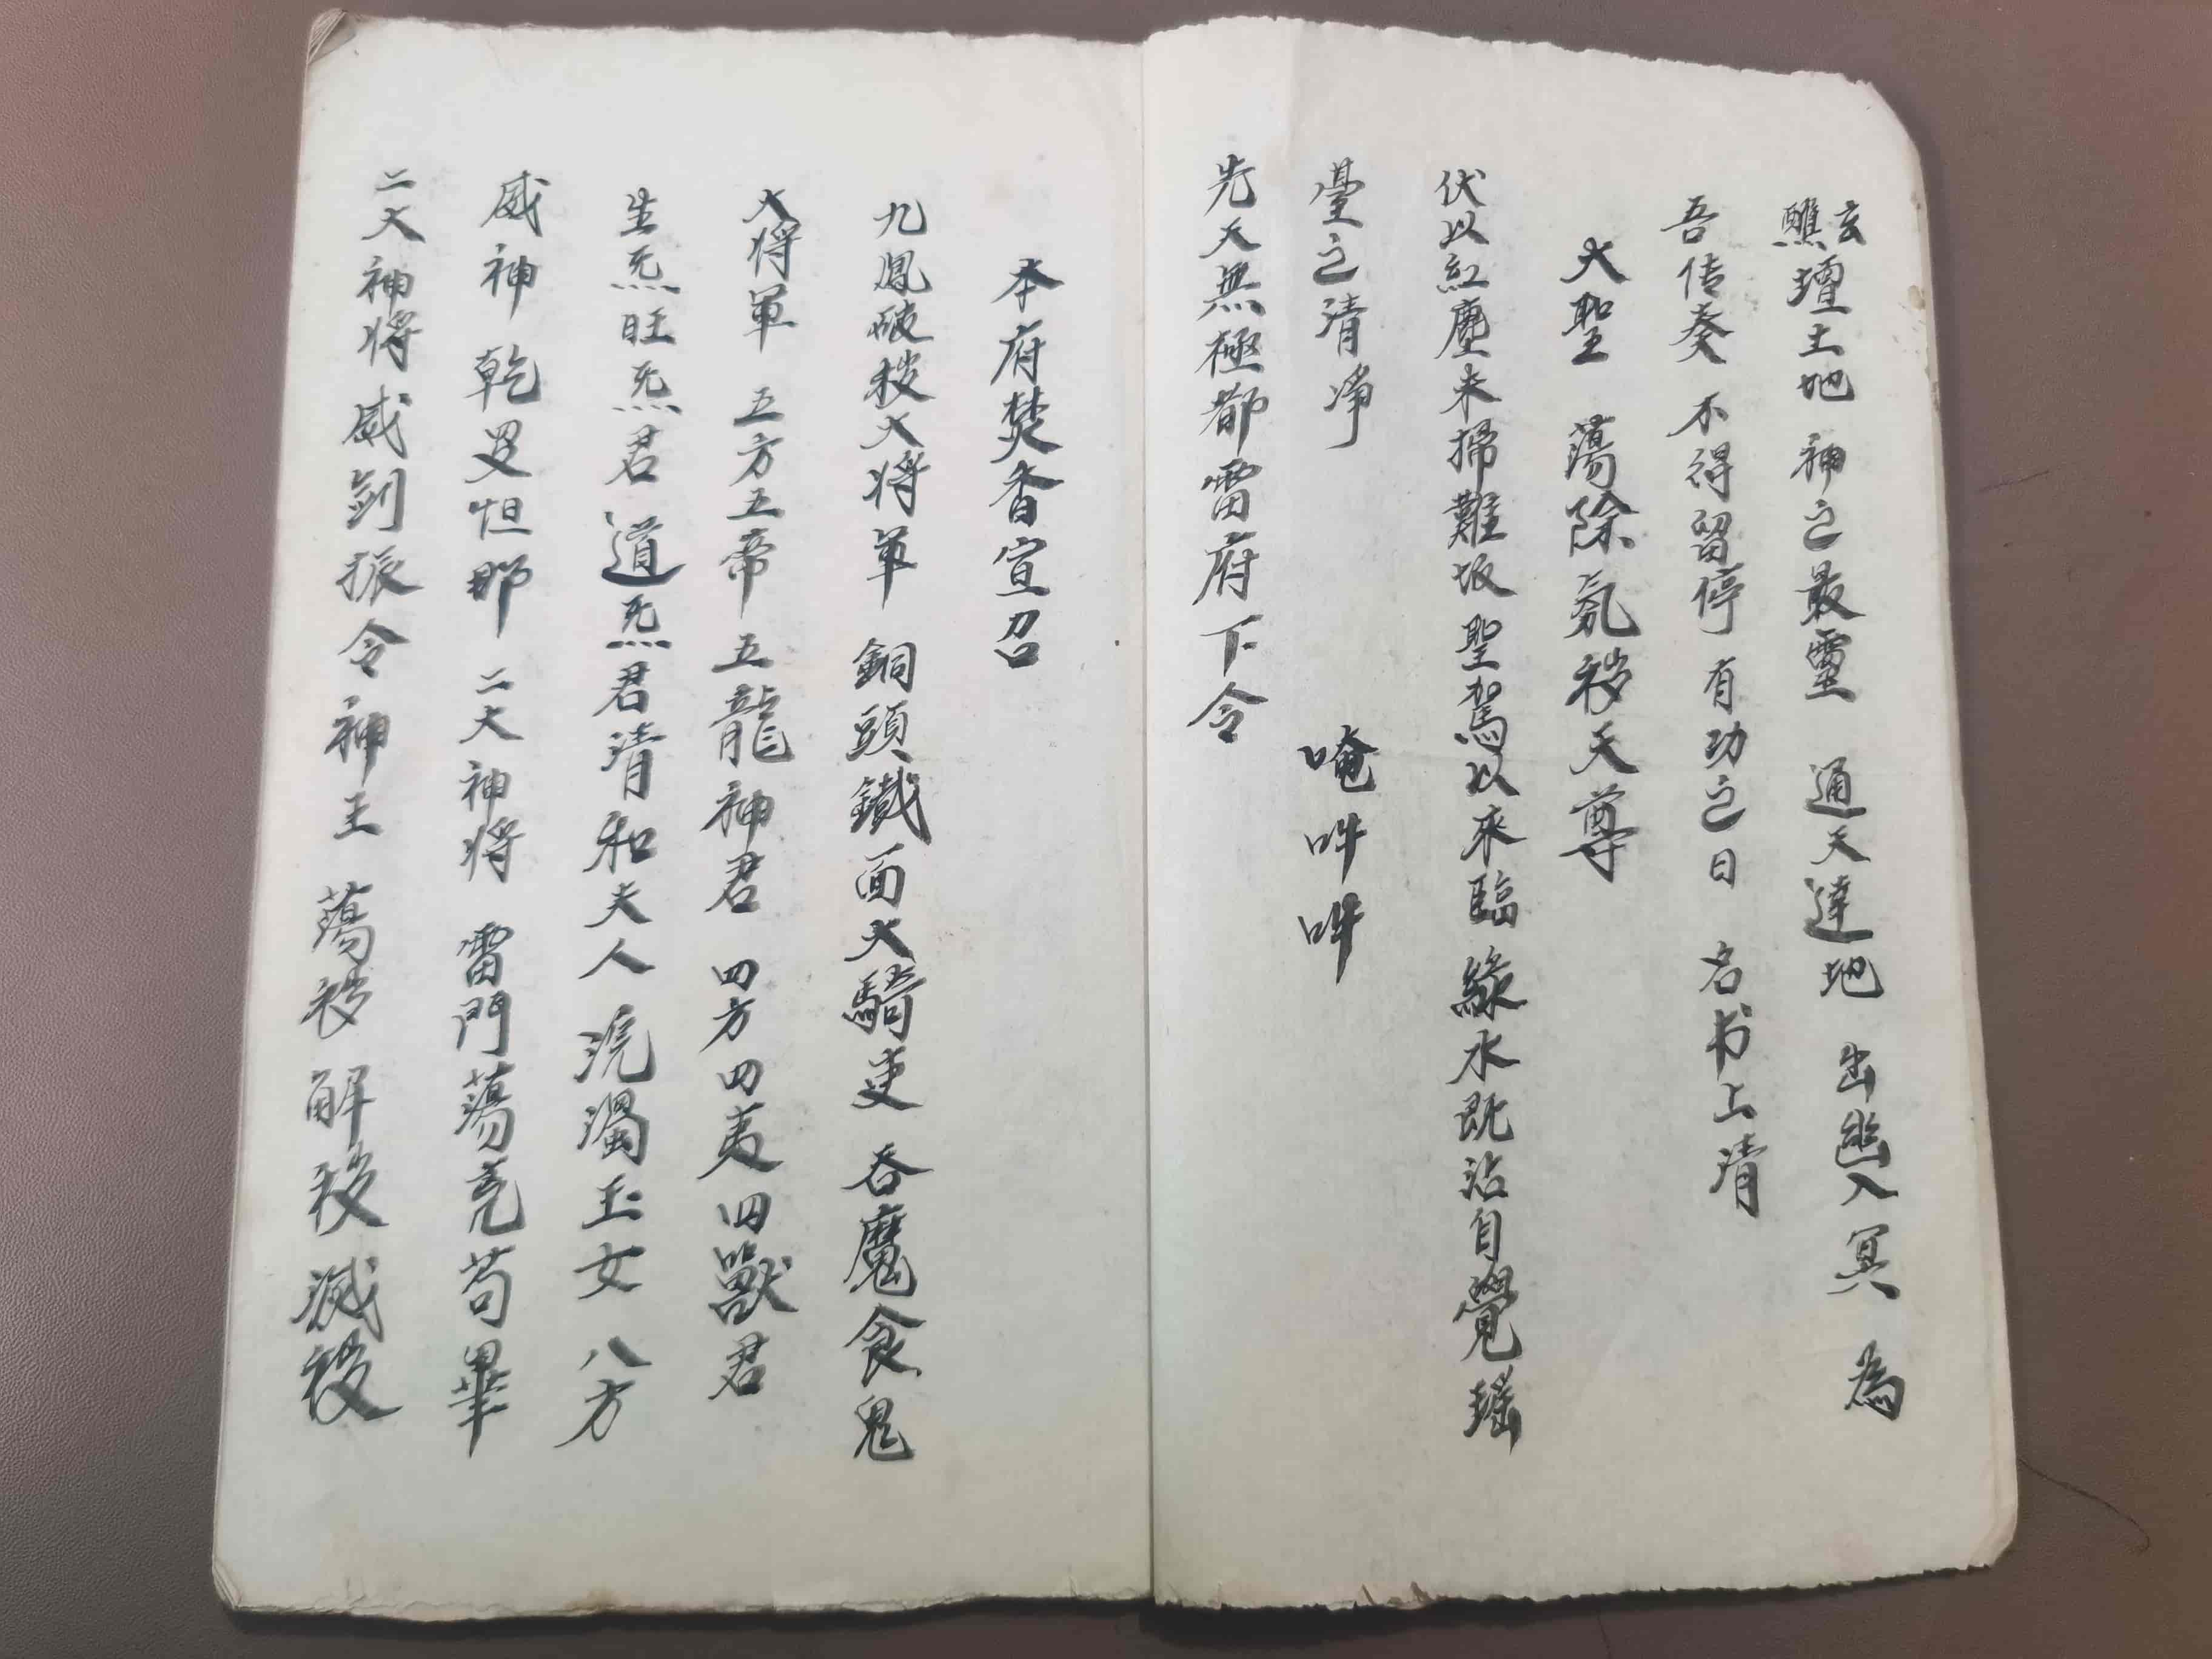 玄醮壇土地 神之最靈 通天達地 出幽入冥 為
吾传奏 不得留停 有功之日 名书上清
大聖 蕩除氛穢天尊
伏以紅塵未掃難坂聖駕以來臨 綠水既沾自覺瑤
臺之清净 唵吽吽
先天無極都雷府下令
本府焚香宣召
九鳳破穢大将軍 銅頭鐵面大騎吏 吞魔食鬼
大将軍 五方五帝五龍神君 四方四夷四獸君
生炁旺炁君 道炁君清和夫人 浣濁玉女 八方
威神 乾叟怛那 二大神将 雷門蕩兇苟畢
二大神将威剑振令神王 蕩穢解穢滅穢